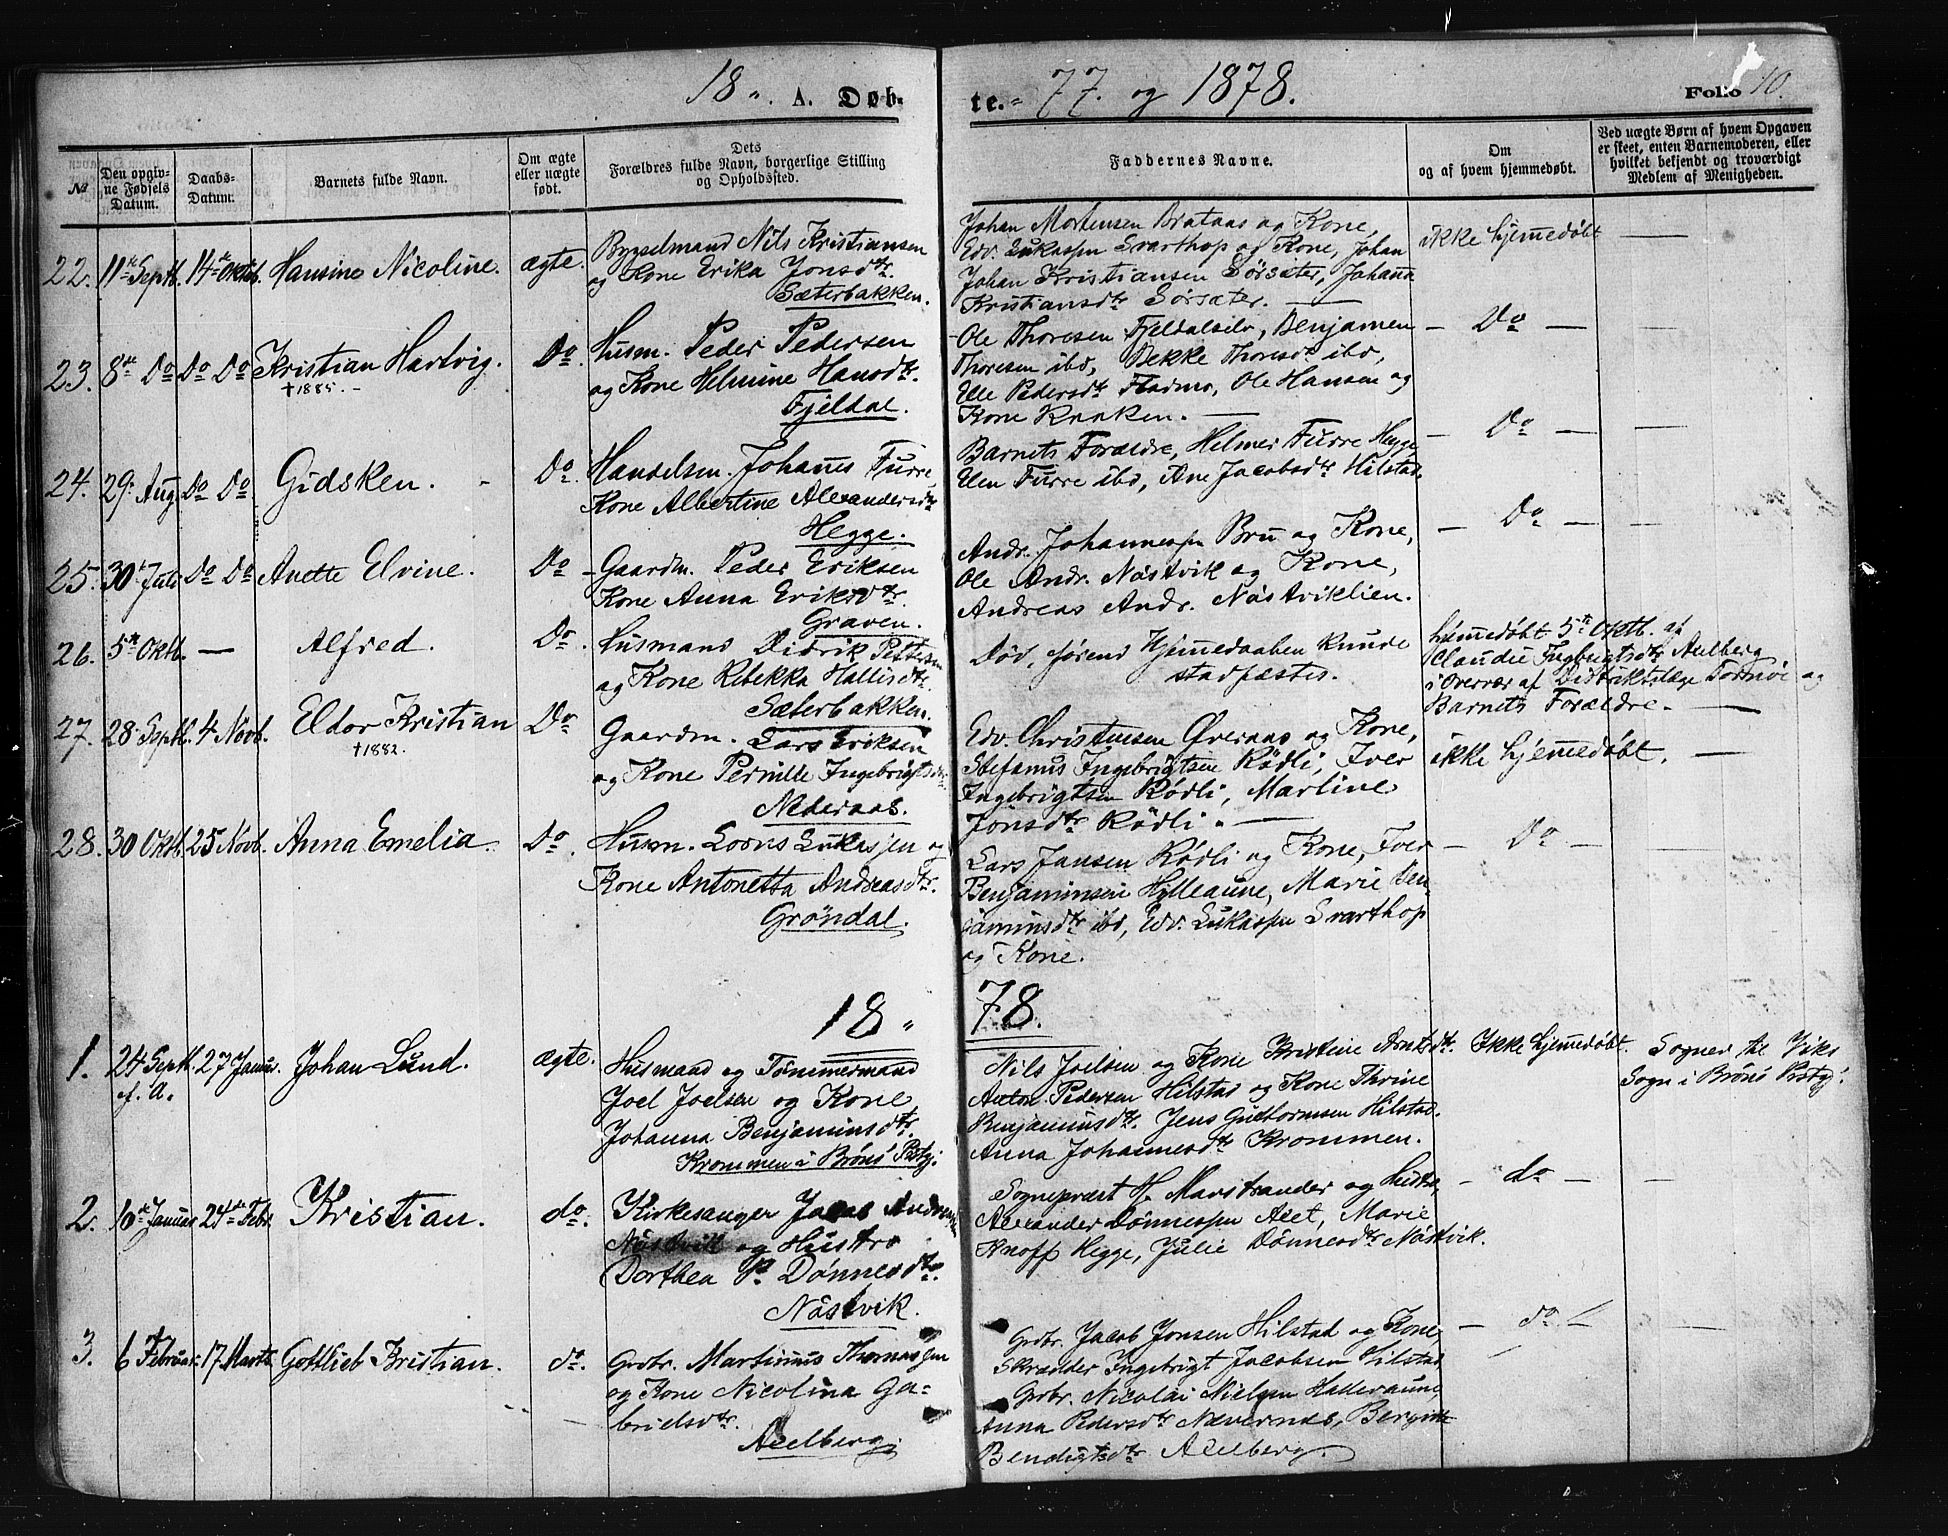 18 „. A. Døb-
te.= 77. og 1878.
Folio 10.
№
Den opgiv-
ne Fødsels
Datum.
Daabs-
Datum.
Barnets fulde Navn.
Om ægte
eller uægte
født.
Dets
Forældres fulde Navn, borgerlige Stilling
og Opholdssted.
Faddernes Navne.
Om
og af hvem hjemmedøbt.
Ved uægte Børn af hvem Opgaven
er skeet, enten Barnemoderen, eller
hvilket bekjendt og troværdigt
Medlem af Menigheden.
22. 11te Septb. 14te Oktb. Hansine Nicoline. ægte.
Bygselmand Nils Kristiansen
og Kone Erika Jonsdtr.
Sæterbakken.
Johan Mortensen Brataas og Kone,
Edv. Lukassen Svarthop og Kone, Johan
Johan Kristiansen Sörsæter, Johanna
Kristiansdtr Sörsæter. —
ikke hjemmedøbt —
23. 8de Do Do Do Kristian Hartvig. Do.
† 1885. -
Husm. Peder Pedersen
og Kone Helmine Hansdtr.
Fjeldal.
Ole Thoresen Fjeldalselv, Benjamen
Thoresen ibd, Bekke Thoresdtr ibd,
Ele Pedersdtr Fladmo, Ole Hansen og
Kone Kraken. —
— Do — —
24. 29. Aug. Do Do. Gidsken. - Do.
Handelsm. Johannes Furre,
Kone Albertine Alexandersdtr
Hegge.
Barnets Forældre, Helmer Furre Hegge
Elen Furre ibd, Ane Jacobsdtr Hilstad.
— Do — —
25. 30te Juli Do Do Anette Elvine. Do -
Gaardm. Peder Eriksen
Kone Anna Eriksdtr.
Graven.
Andr. Johannessen Bru og Kone,
Ole Andr. Nästvik og Kone,
Andreas Andr. Nästviklien.
— Do — —
26. 5te Oktb. — Alfred. Do.
Husmand Didrik Pettersen
og Kone Rebekka Hallisdtr.
Sæterbakken.
Död, førend Hjemmedaaben kunde
stadfæstes.
hjemmedøbt 5te Oktb. af
Claudie Ingbrigtsdtr Aelberg
i Overvær af Distriktslæge Tormöe og
Barnets Forældre. —
27. 28. Septb. 4. Novb. Eldor Kristian Do
† 1882.
Gaardm. Lars Eriksen
og Kone Pernille Ingebrigtsdtr
Nederaas.
Edv. Christensen Øveraas og Kone,
Stefanus Ingebrigtsen Rödli, Iver
Ingebrigtsen Rödli, Martine
Jonsdtr Rödli. —
ikke hjemmedøbt. —
28. 30 Oktb. 25 Novb. Anna Emelia. Do.
Husm. Lorns Lukasjen og
Kone Antonetta Andreasdtr.
Gröndal.
Lars Jansen Rödli og Kone, Iver
Benjaminsen Hylleaune, Marie Ben-
jaminsdtr ibd, Edv. Lukassen Svarthop
og Kone.
— Do — —
18„ 78.
1. 24 Septb. 27 Januar. Johan Lund. ægte.
f. A.
Husmand og Tömmermand
Joel Joelsen og Kone
Johanna Benjaminsdtr.
Krommen i Brönö Prstgj.
Nils Joelsen og Kone Kristine Arntsdtr.
Anton Pedersen Hilstad og Kone Thrine
Benjaminsdtr. Jens Guthormsen Hilstad.
Anna Johannesdtr Krommen.
Ikke hjemmedøbt.
Sogner til Viks
Sogn i Brönö Prstgj.
2. 16de Januar 24de Febr. Kristian. do.
Kirkesanger Jacob Andreassen
Nästvik og Hustro
Dorthea P. Dönnesdtr.
Nästvik.
Sognepræst H. Marstrander og Hustro,
Alexander Dönnessen Aeet, Marie
Knoff Hegge, Julie Dönnesdtr Nästvik.
— do — —
3. 6 Februar. 17. Marts. Gottlieb Kristian. do.
Grdbr. Martinus Thomassen
og Kone Nicolina Ga-
brielsdtr.
Aelberg.
Grdbr. Jacob Jonsen Hilstad og Kone
Skrædder Ingebrigt Jacobsen Hilstad
Grdbr. Nicolai Nielsen Halleraune
Anna Pedersdtr Nævernes, Bergitte
Bendigtsdtr. Aelberg.
— do —